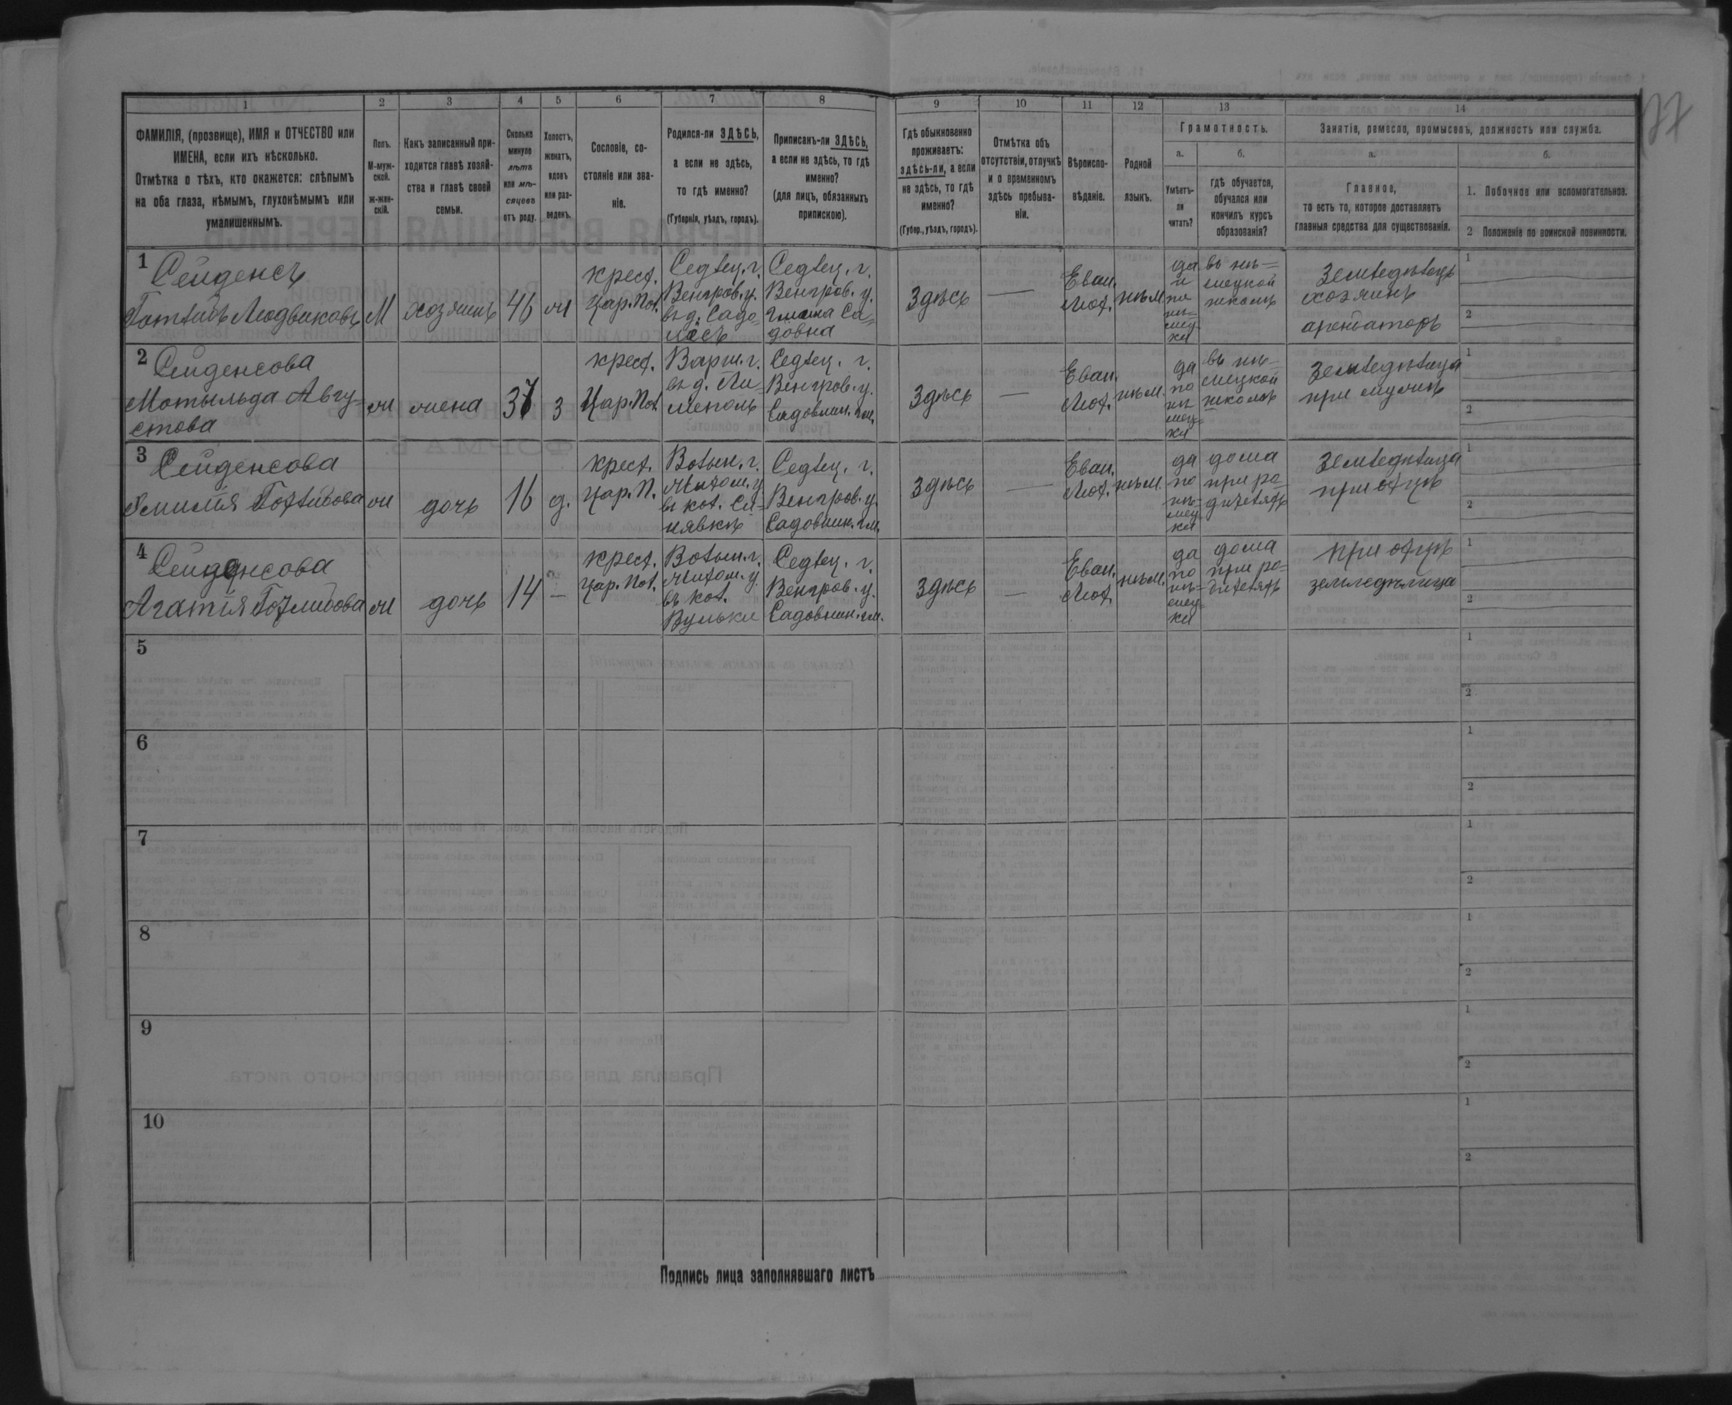 77
1 2 3 4 5 6 7 8 9 10 11 12 13 14
ФАМИЛІЯ, (прозвище), ИМЯ и ОТЧЕСТВО или
ИМЕНА, если ихъ нѣсколько.
Отмѣтка о тѣхъ, кто окажется: слѣпымъ
на оба глаза, нѣмымъ, глухонѣмымъ или
умалишеннымъ.
Полъ.
М-муж-
ской.
Ж-жен-
скій.
Какъ записанный при-
ходится главѣ хозяй-
ства и главѣ своей
семьи.
Сколько
минуло
лѣтъ
или мѣ-
сяцевъ
отъ роду.
Холостъ,
женатъ,
вдовъ
или раз-
веденъ.
Сословіе, со-
стояніе или зва-
ніе.
Родился-ли ЗДѢСЬ,
а если не здѣсь,
то гдѣ именно?
(Губернія, уѣздъ, городъ).
Приписанъ-ли ЗДѢСЬ,
а если не здѣсь, то гдѣ
именно?
(для лицъ, обязанныхъ
припискою).
Гдѣ обыкновенно
проживаетъ:
здѣсь-ли, а если
не здѣсь, то гдѣ
именно?
(Губер., уѣздъ, городъ).
Отмѣтка объ
отсутствіи, отлучкѣ
и о временномъ
здѣсь пребыва-
ніи.
Вѣроиспо-
вѣданіе.
Родной
языкъ.
Грамотность.
а.
Умѣетъ-
ли
читать?
б.
гдѣ обучается,
обучался или
кончилъ курсъ
образованія?
Занятіе, ремесло, промыселъ, должность или служба.
а.
Главное,
то есть то, которое доставляетъ
главныя средства для существованія.
б.
1. Побочное или вспомогательное.
2 Положеніе по воинской повинности.
1
Сейденсъ
Готлибъ Людвиковъ
М
хозяинъ
46
ж
крест.
Цар. Пол.
Седлец. г.
Венгров. у.
въ д. Садо-
лесъ
Седлец. г.
Венгров. у.
Гмина Са-
довна
Здѣсь
—
Еван.
Лют.
нѣм.
да
и
по
нѣ-
мец-
ки
въ нѣ-
мецкой
школѣ
Земледѣлецъ
хозяинъ
арендаторъ
1
2
2
Сейденсова
Мотыльда Авгу-
стова
ж
жена
37
з
крест.
Цар. Пол.
Варш. г.
въ д. Ли-
Седлец. г.
Венгров. у.
Садовнин. гм.
Здѣсь
—
Еван.
Лют.
нѣм.
да
по
нѣ-
мец-
ки
въ нѣ-
мецкой
школѣ
Земледѣлица
при мужѣ
1
2
3
Сейденсова
Эмилія Готлибова
ж
дочь
16
д.
крест.
Цар. П.
Волын. г.
Житом. у.
въ кол. Си-
нявкѣ
Седлец. г.
Венгров. у.
Садовнин. гм.
Здѣсь
—
Еван.
Лют.
нѣм.
да
по
нѣ-
мец-
ки
дома
при ро-
дителяхъ
Земледѣлица
при отцѣ
1
2
4
Сейденсова
Агатія Готлибова
ж
дочь
14
—
крест.
Цар. Пол.
Волын. г.
Житом. у.
въ кол.
Вульки
Седлец. г.
Венгров. у.
Садовнин. гм.
Здѣсь
—
Еван.
Лют.
нѣм.
да
по
нѣ-
мец-
ки
дома
при ро-
дителяхъ
при отцѣ
земледѣлица
1
2
5
1
2
6
1
2
7
1
2
8
1
2
9
1
2
10
1
2
Подпись лица заполнявшаго листъ